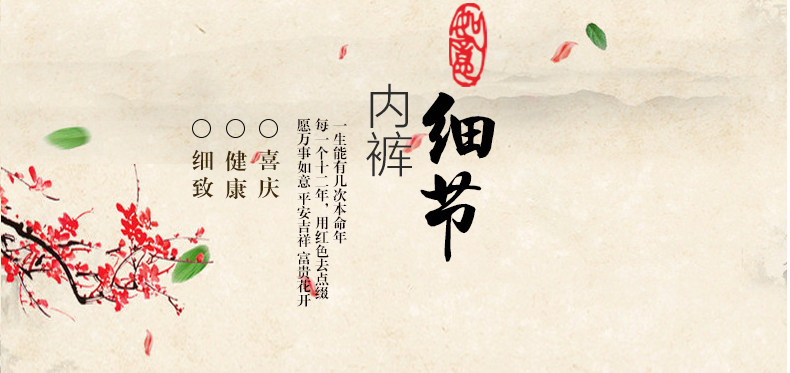 如意
细节
内裤
一生能有几次本命年
每一个十二年，用红色去点缀
愿万事如意 平安吉祥 富贵花开
○喜庆
○健康
○细致